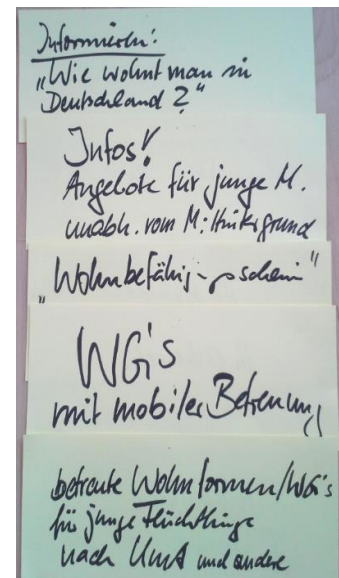 Informieren:
„Wie wohnt man in
Deutschland?“
Infos!
Angebote für junge M.
unabh. vom M:Hintergrund
„Wohnbefähig-gsschein“
WG's
mit mobiler Betreuung
betreute Wohnformen/WG's
für junge Flüchtlinge
nach UmA und andere